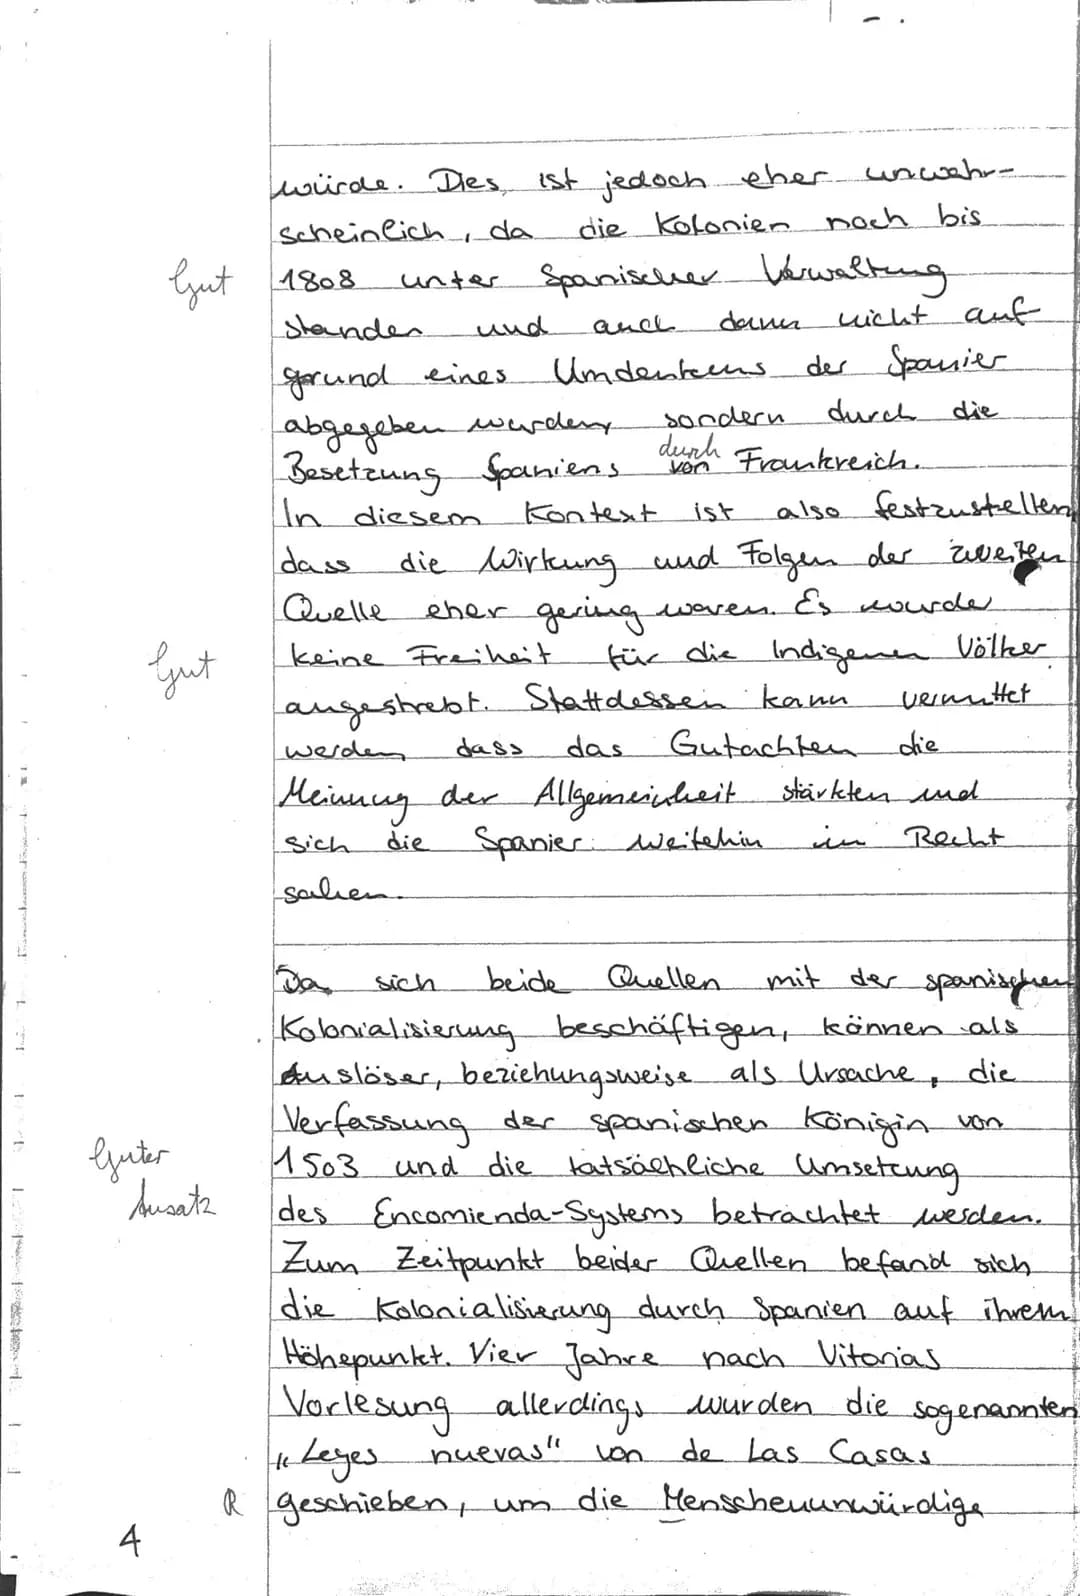 würde. Dies ist jedoch eher unwahr-
scheinlich, da die Kolonien noch bis
Gut 1808 unter Spanischer Verwaltung
standen und auch dann nicht auf
grund eines Umdenkens der Spanier
abgegeben wurden, sondern durch die
durch
Besetzung Spaniens von Frankreich.
In diesem Kontext ist also festzustellen,
dass die Wirkung und Folgen der zweiten
Quelle eher gering waren. Es wurde
Gut keine Freiheit für die Indigenen Völker
angestrebt. Stattdessen kann vermuttet
werden, dass das Gutachten die
Meinung der Allgemeinheit stärkten und
sich die Spanier weitehin im Recht
sahen.
Da sich beide Quellen mit der spanischen
Kolonialisierung beschäftigen, können als
Auslöser, beziehungsweise als Ursache, die
Verfassung der spanischen Königin von
Guter 1503 und die tatsächliche Umsetzung
Ansatz des Encomienda-Systems betrachtet werden.
Zum Zeitpunkt beider Quellen befand sich
die Kolonialisierung durch Spanien auf ihrem
Höhepunkt. Vier Jahre nach Vitorias
Vorlesung allerdings wurden die sogenannten
„Leyes nuevas" von de Las Casas
R geschieben, um die Menschenunwürdige
4